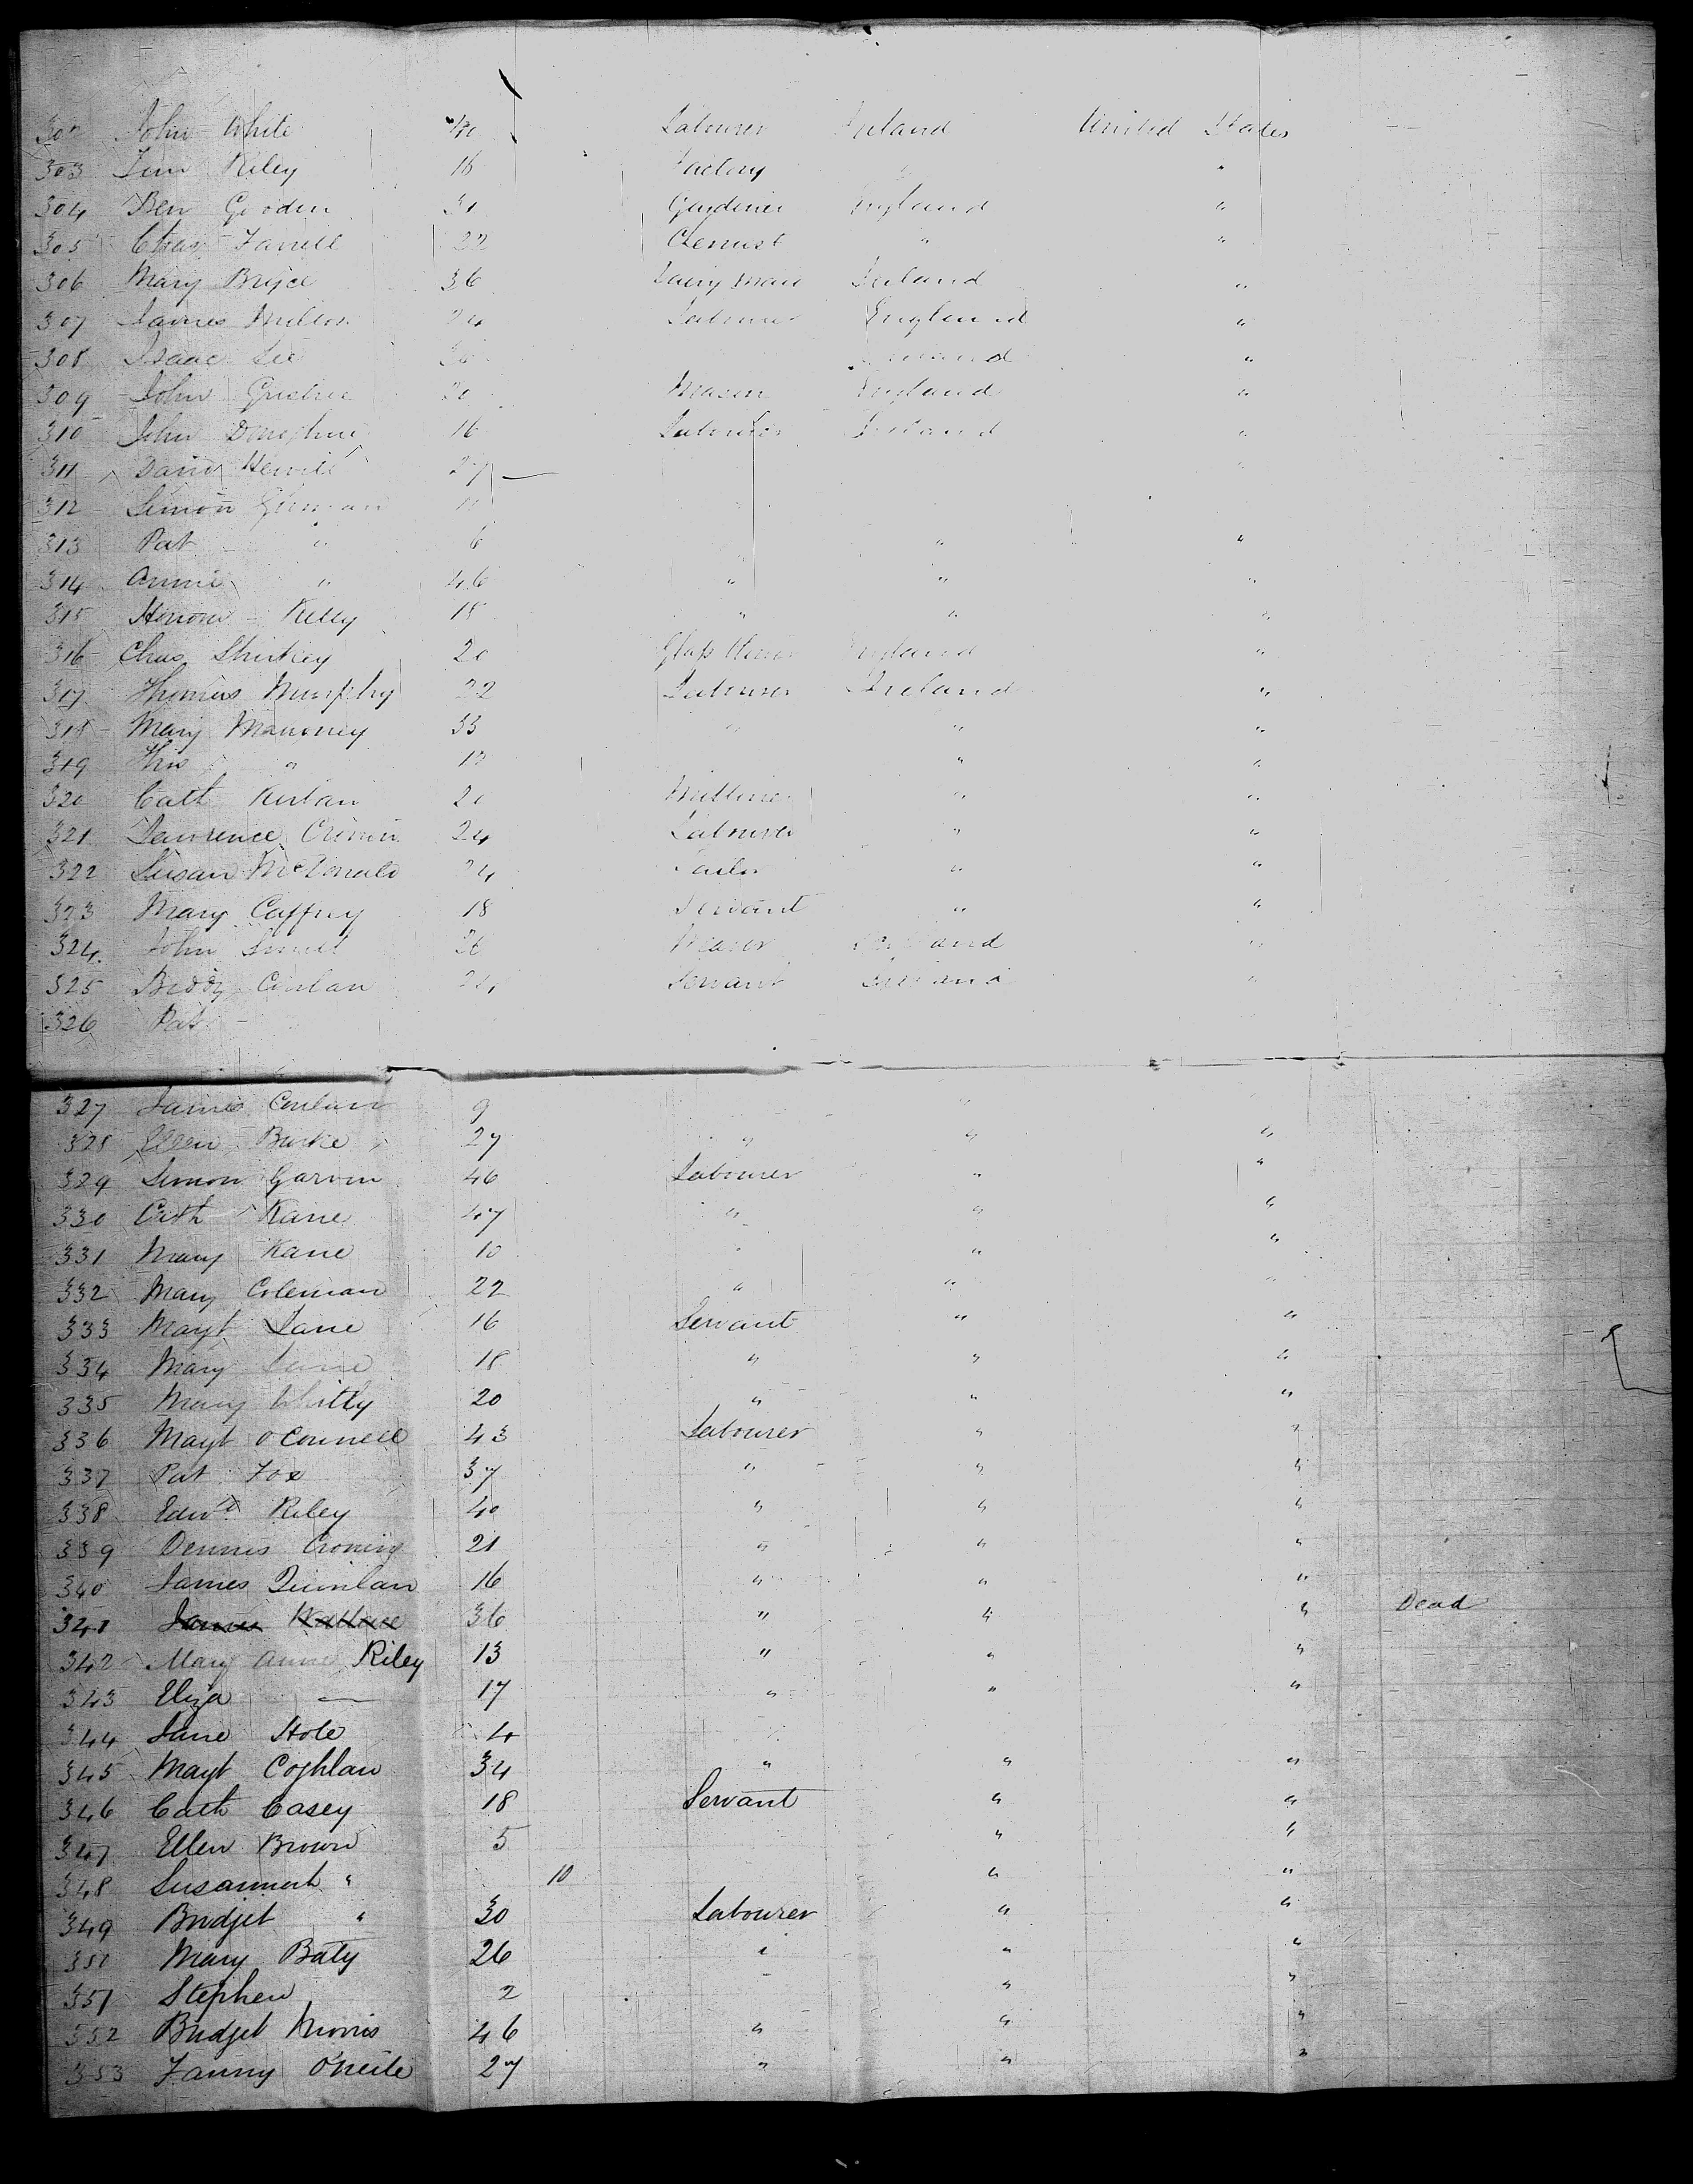 302 John White 40 Labourer Ireland United States
303 Riley 18 Factory "
304 Ben Gooden 31 Gardiner England "
305 Chas Farrell 22 Chemist " "
306 Mary Bryce 36 Dairy maid Ireland "
307 James Milton 24 Labourer England "
308 Isaac Lee "
309 John 20 Mason England "
310 John Donoghue 16 Labourer Ireland "
311 David 27
312 Simon
313 Pat " 6 " "
314 Annie " 46 " " "
315 Honora Kelly 18 " " "
316 Chas 20 England "
317 Thomas Murphy 22 Labourer Ireland "
318 Mary Mahoney 33 " " "
319 Thos " " "
320 Cath Kirlan Milliner " "
321 Lawrence 24 Labourer " "
322 Susan McDonald 24 Tailor " "
323 Mary Caffrey 18 Servant " "
324 John England "
325 Biddy Conlan Servant Ireland "
326 Pat
327 James Conlan 9 "
328 Ellen Burke 27 " " "
329 Simon Garvin 46 Labourer " "
330 Cath Kane 47 " " "
331 Mary Kane 10 " " "
332 Mary Coleman 22 " " "
333 Mayt Lane 16 Servant " "
334 Mary Lane 18 " " "
335 Mary Whitty 20 " " "
336 Mayt O'Connell 43 Labourer " "
337 Pat Fox 37 " " "
338 Edwd Riley 40 " " "
339 Dennis Cronin 21 " " "
340 James Quinlan 16 " " "
341 James Wallace 36 " " " Dead
342 Mary Anne Riley 13 " " "
343 Eliza — 17 " " "
344 Jane Hole 4
345 Mayt Coghlan 34 " " "
346 Cath Casey 18 Servant " "
347 Ellen Brown 5 " "
348 Susannah " 10 " "
349 Bridjet " 30 Labourer " "
350 Mary Baty 26 " " "
351 Stephen 2 " "
352 Bridjet Morris 46 " " "
353 Fanny O'Neile 27 " " "